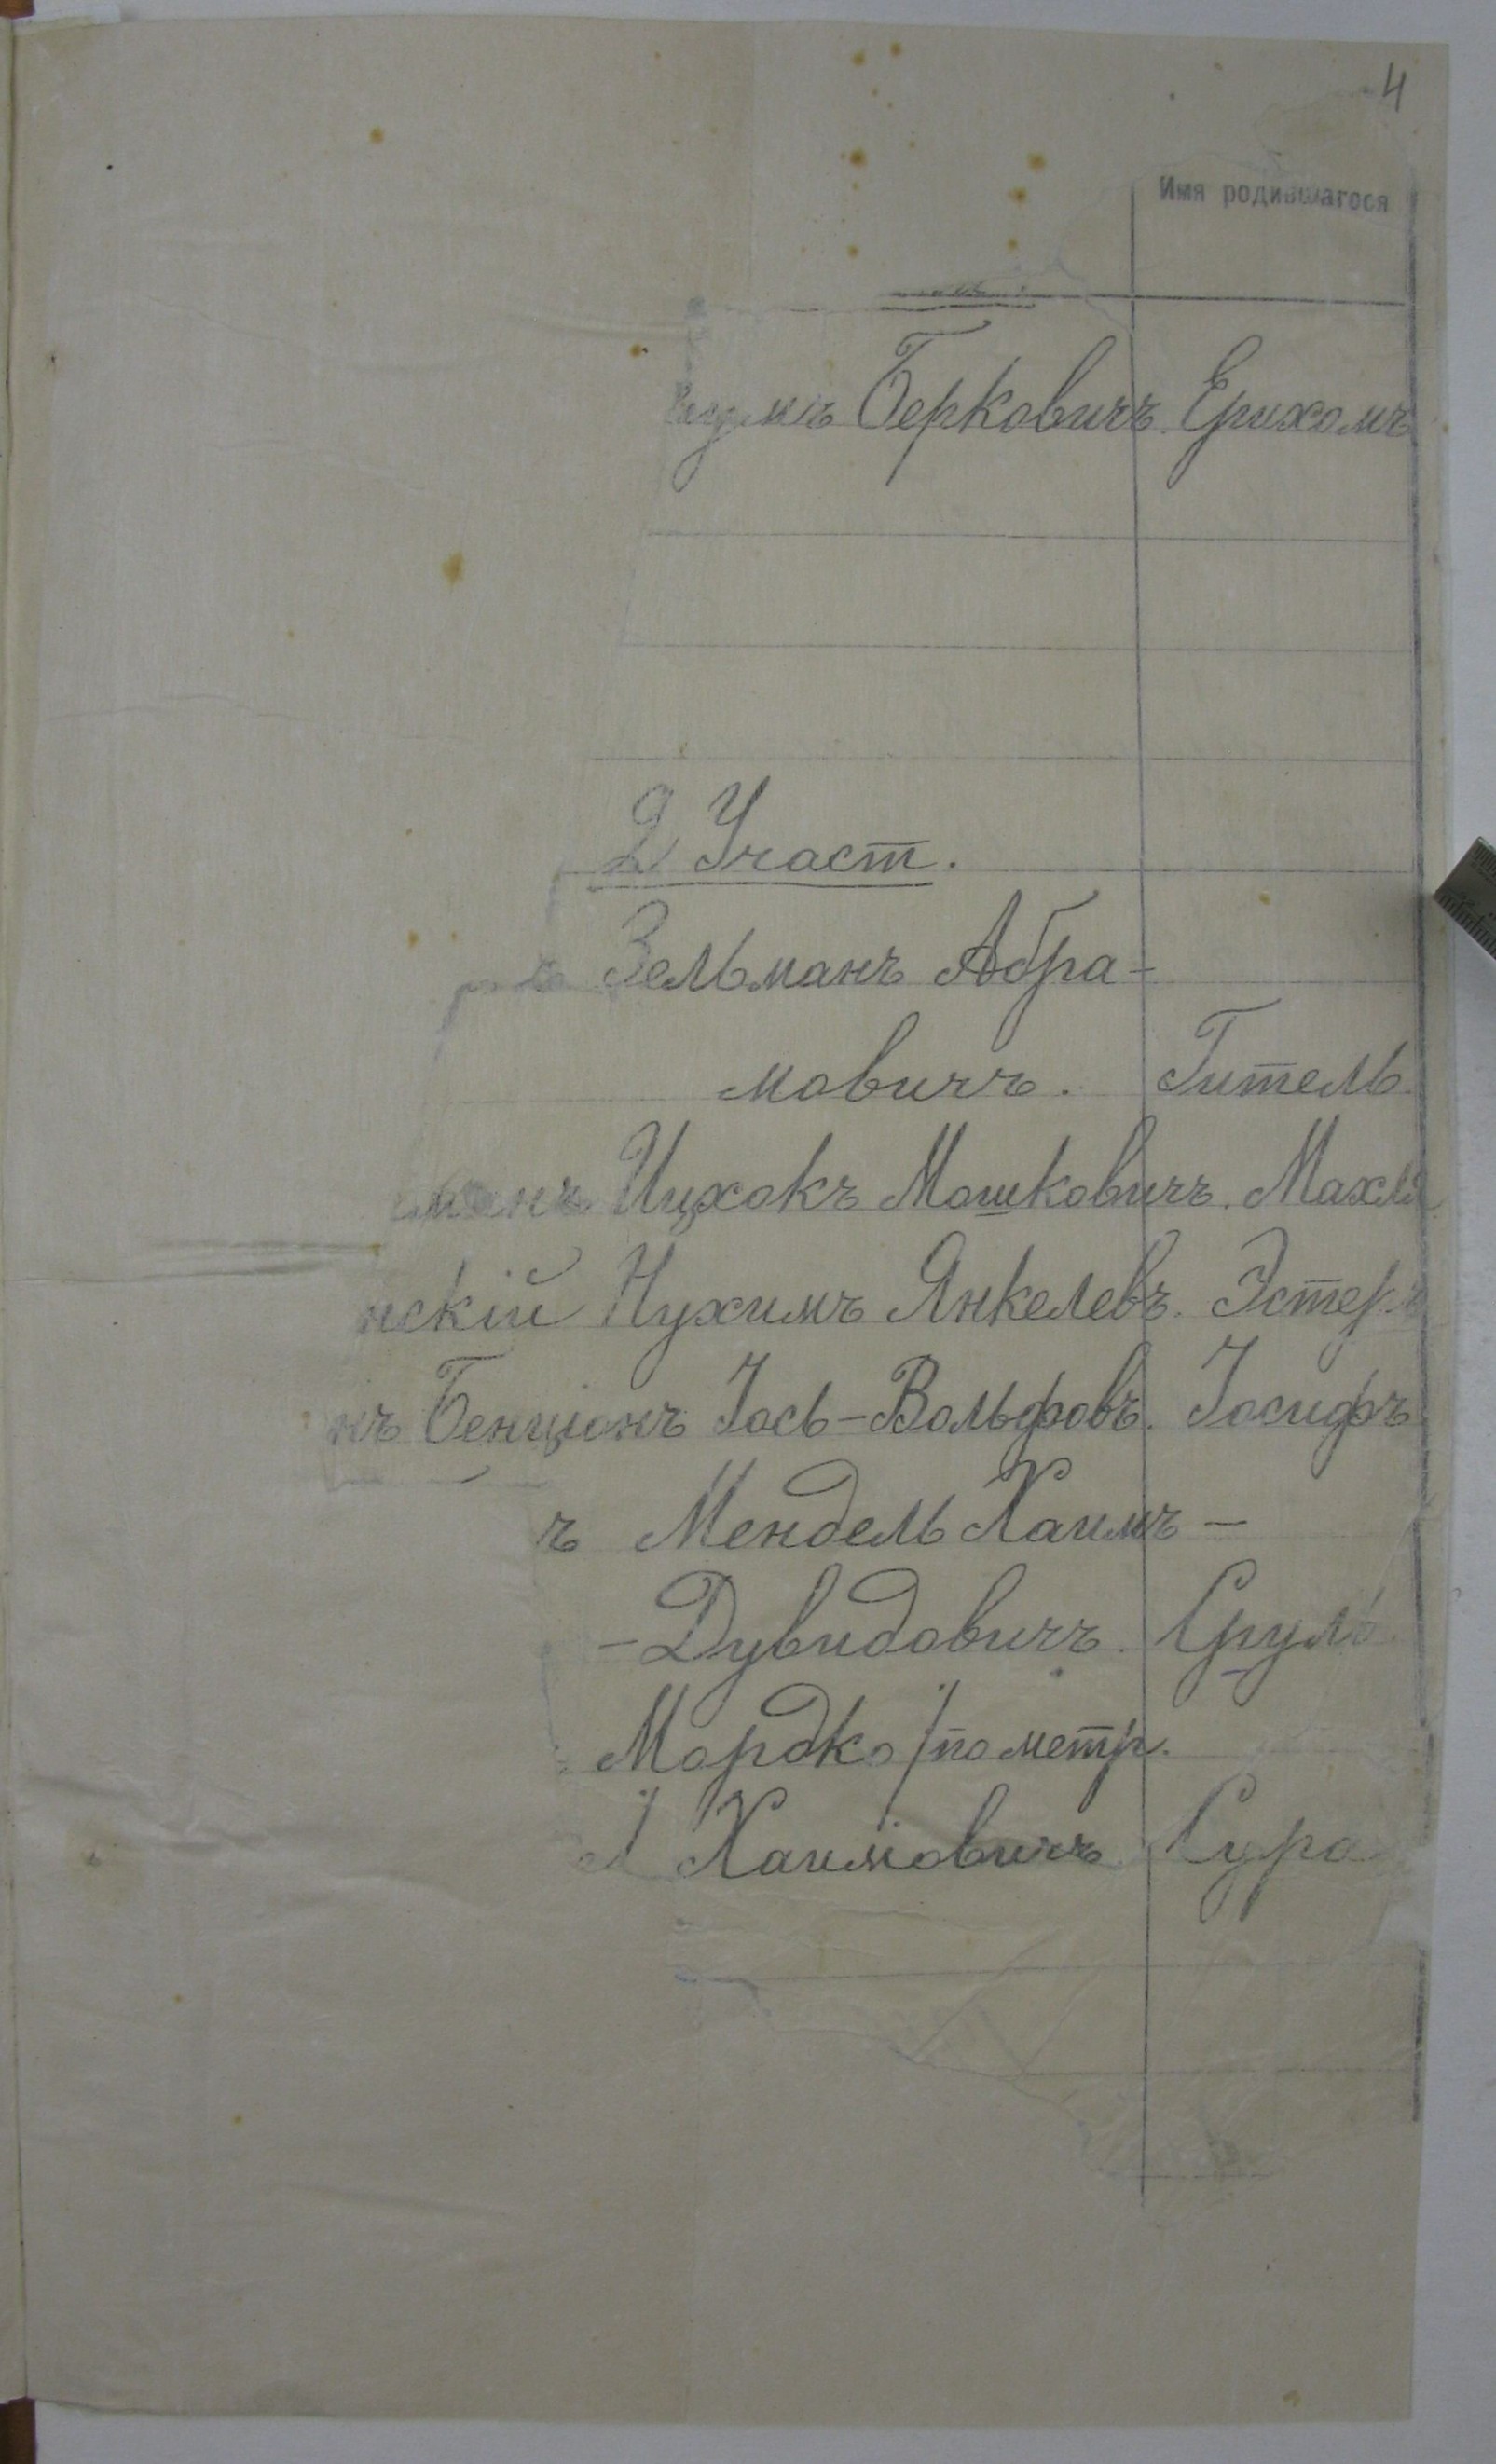 4
Имя родившагося
Берковичъ Ерихомъ
2 Участ.
Зельманъ Абра-
мовичъ. Гитель
Ицхокъ Мошковичъ. Махля
нскій Нухимъ Янкелевъ. Эстеръ
нъ Бенціонъ Іось-Вольфовъ. Іосифъ
ъ Мендель Хаимъ-
-Дувидовичъ. Сруль
Мордко /по метр.
Хаимовичъ Сура